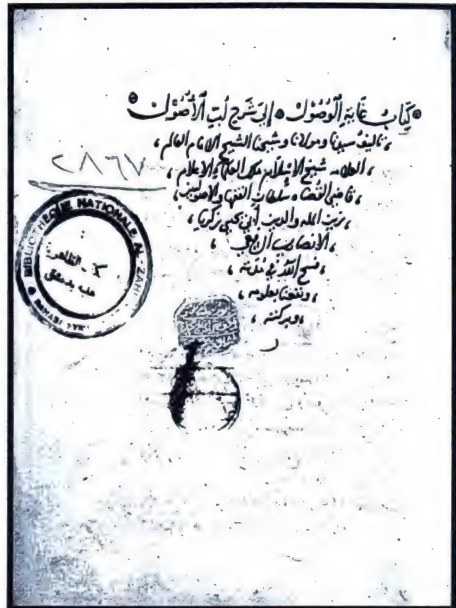 كتاب غاية الوصول إلى شرح لب الأصول
تأليف سيدنا ومولانا وشيخنا الشيخ الإمام العالم
العلامة شيخ الإسلام ملك العلماء الأعلام
قاضي القضاة سلطان الفقهاء والأصوليين
زين الملة والدين أبي يحيى زكريا
الأنصاري الشافعي
فسح الله في مدته
ونفعنا بعلومه
وبركته
٢٨٦٧
BIBLIOTHEQUE NATIONALE
الظاهرية
بدمشق